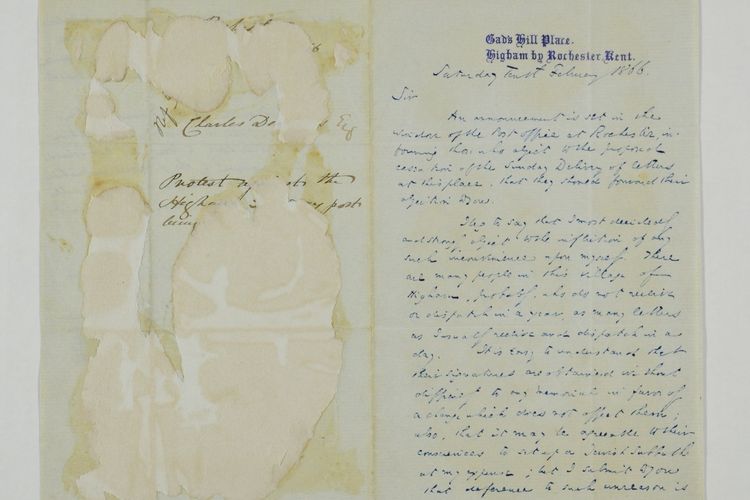 Charles D
Esq
Protest against the
Higham post
being
Gad's Hill Place.
Higham by Rochester, Kent.
Saturday tenth February 1866.
Sir
An announcement is set in the
window of the Post office at Rochester, in-
forming those who object to the proposed
cessation of the Sunday Delivery of letters
at this place, that they should forward their
objection to you.
I beg to say that I most decidedly
and strongly object to the infliction of any
such inconvenience upon myself. There
are many people in this village of
Higham, probably, who do not receive
or dispatch in a year, as many letters
as I usually receive and dispatch in a
day. It is easy to understand that
their signatures are obtained without
difficulty to any Memorial in favor of
a change which does not affect them;
also, that it may be agreeable to their
consciences to set up a Jewish Sabbath
at my expense; but I submit to you
that deference to such unreason is